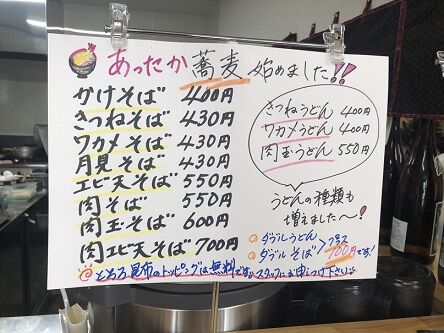 あったか蕎麦始めました!!
かけそば 400円
きつねそば 430円
ワカメそば 430円
月見そば 430円
エビ天そば 550円
肉そば 550円
肉玉そば 600円
肉エビ天そば 700円
きつねうどん 400円
ワカメうどん 400円
肉玉うどん 550円
うどんの種類も
増えました〜!
ダブルうどん
ダブルそば > プラス
100円です!
とろろ昆布のトッピングは無料です。スタッフにお申しつけ下さい